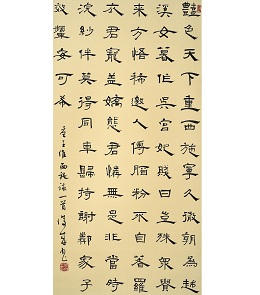 艷色天下重西施寧久微朝為越
溪女暮作吳宮妃賤日豈殊眾貴
來方悟稀邀人傅脂粉不自著羅
衣君寵益嬌態君憐無是非當時
浣紗伴莫得同車歸持謝鄰家子
效顰安可希
唐王維西施詠一首